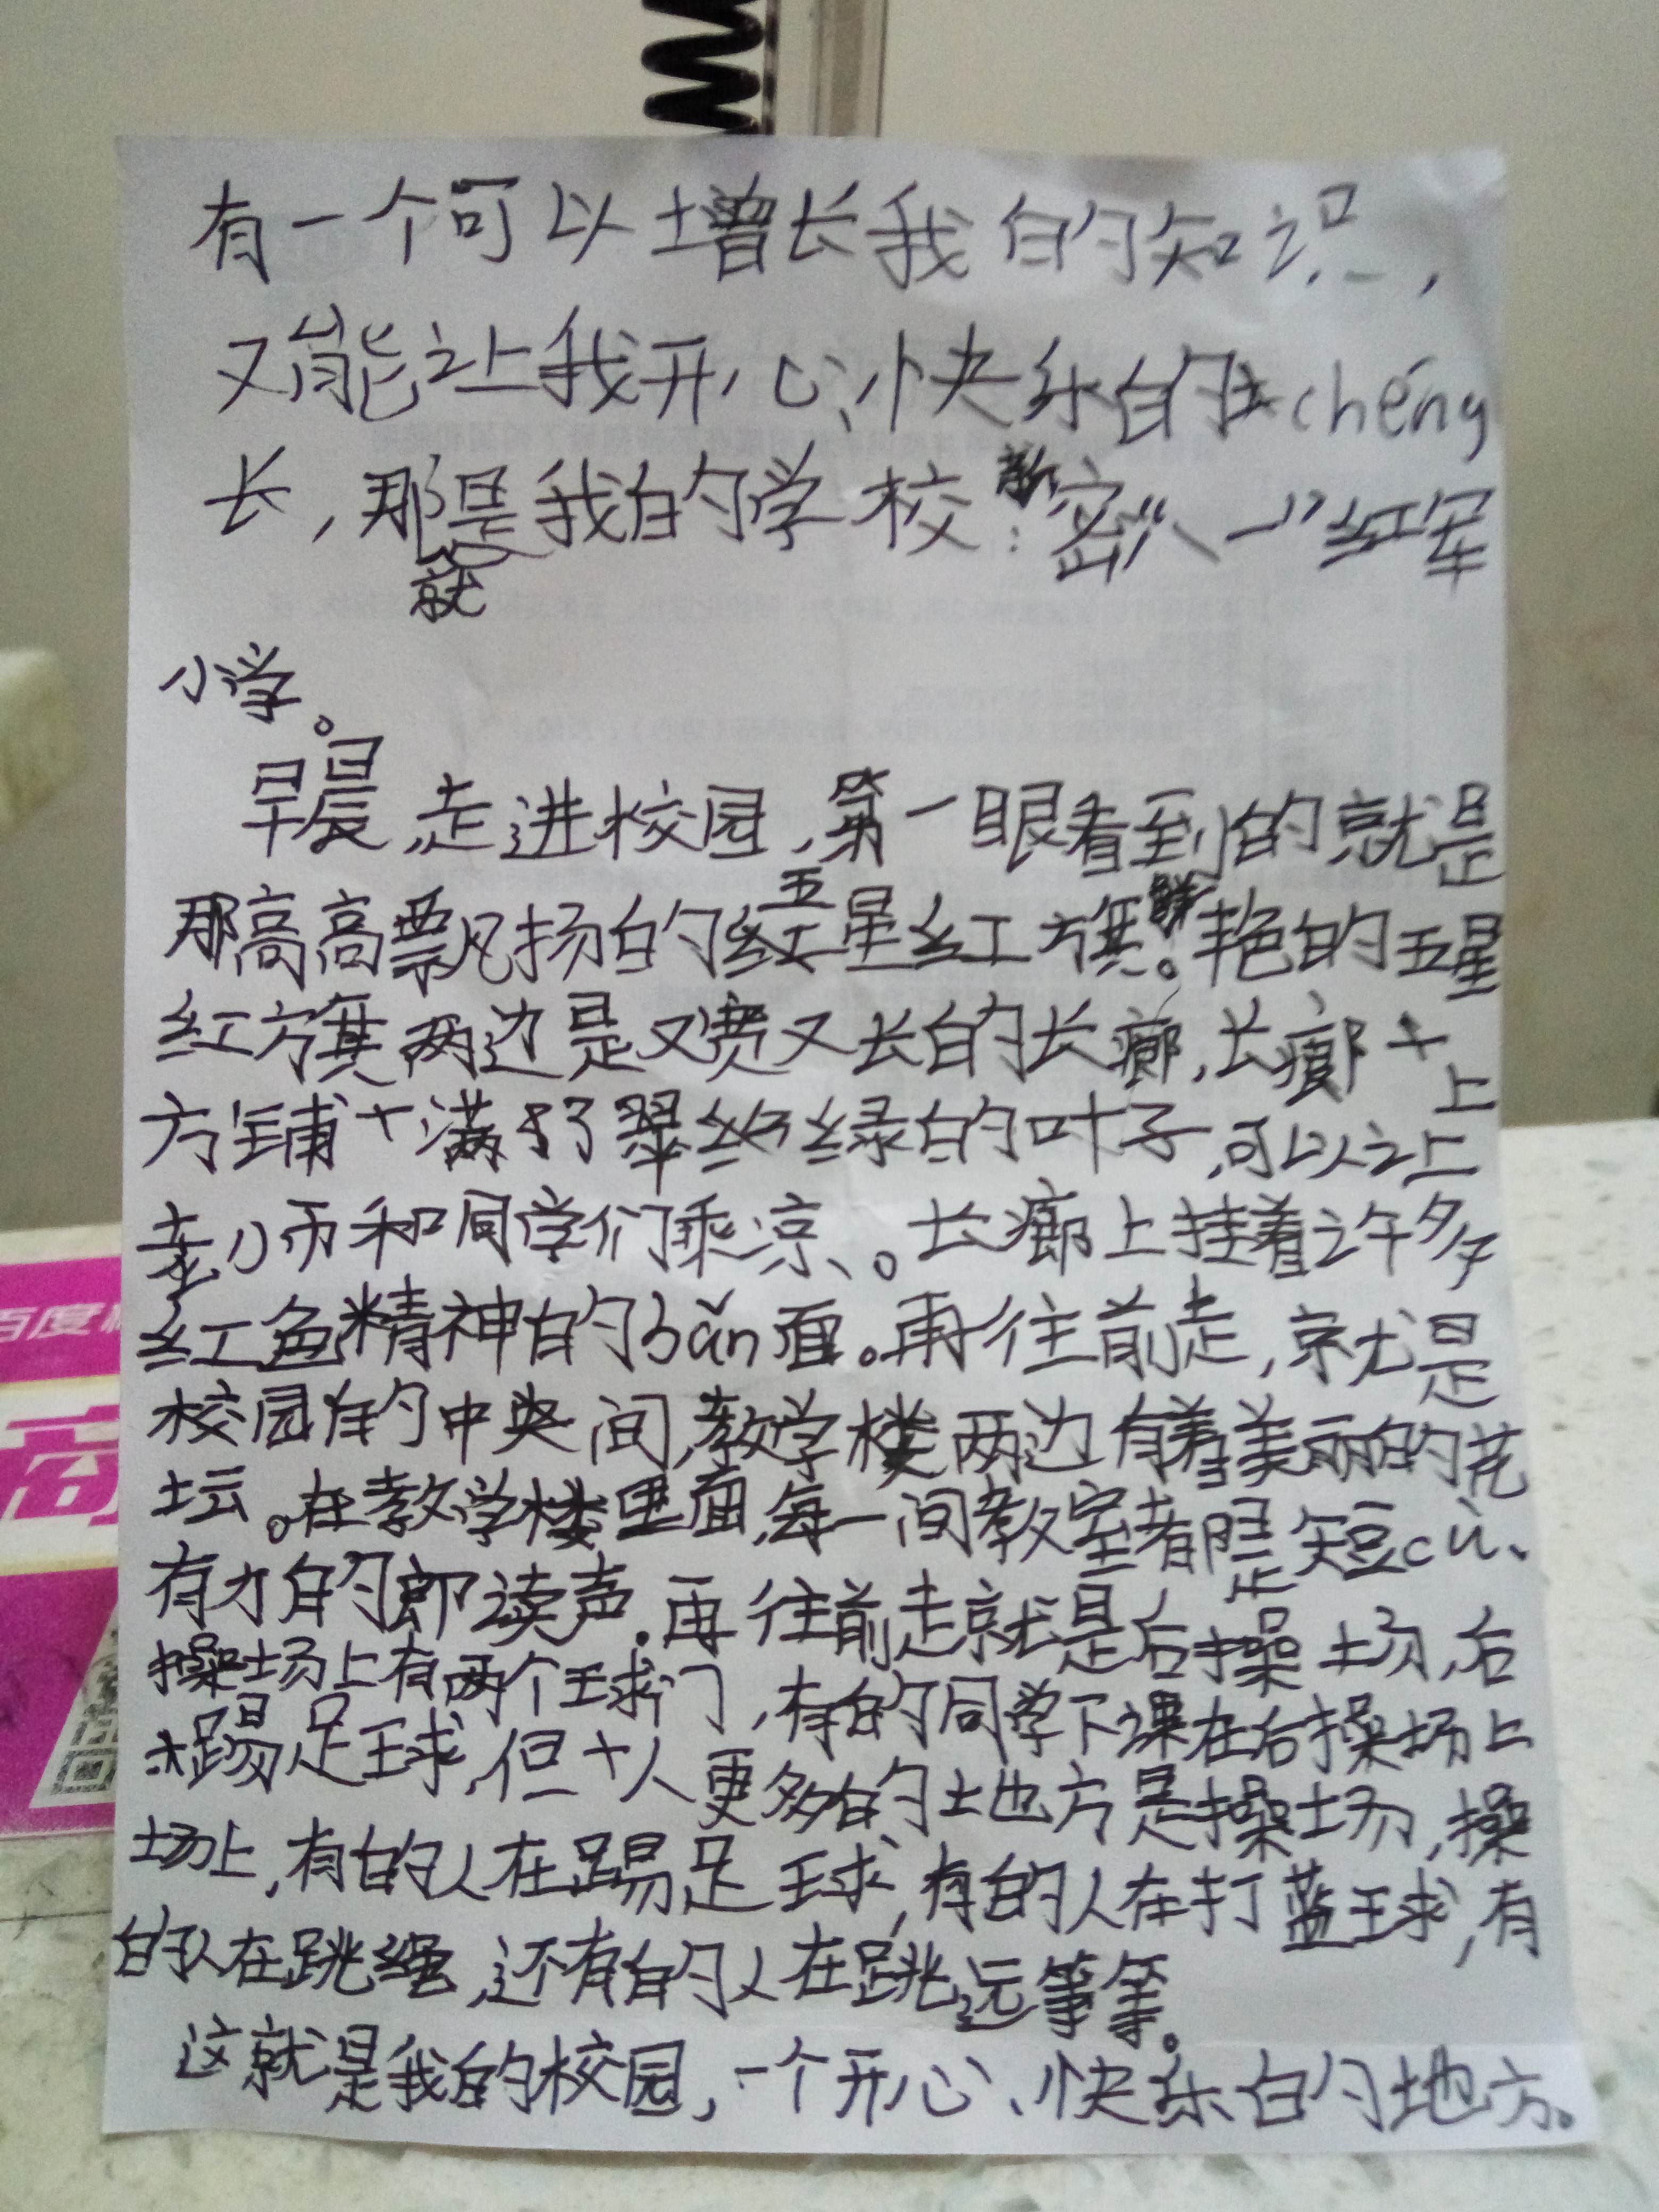 有一个可以增长我的知识,
又能让我开心、快乐的chéng
长,那是我的学校:密"八一"红军
就
小学。
早晨,走进校园,第一眼看到的就是
五
那高高飘扬的星红旗。鲜艳的五星
红旗两边是又宽又长的长廊,长廊上
方铺满了翠绿的叶子,可以让
老师和同学们乘凉。长廊上挂着许多
红色精神的bǎn面。再往前走,就是
校园的中央间,教学楼两边有着美丽的花
坛。在教学楼里面,每一间教室都是短cù、
有力的郎读声。再往前走就是后操场,后
操场上有两个球门,有的同学下课在后操场上
踢足球,但人更多的地方是操场,操
场上,有的人在踢足球,有的人在打蓝球,有
的人在跳绳,还有的人在跳远等等。
这就是我的校园,一个开心、快乐的地方。
百度